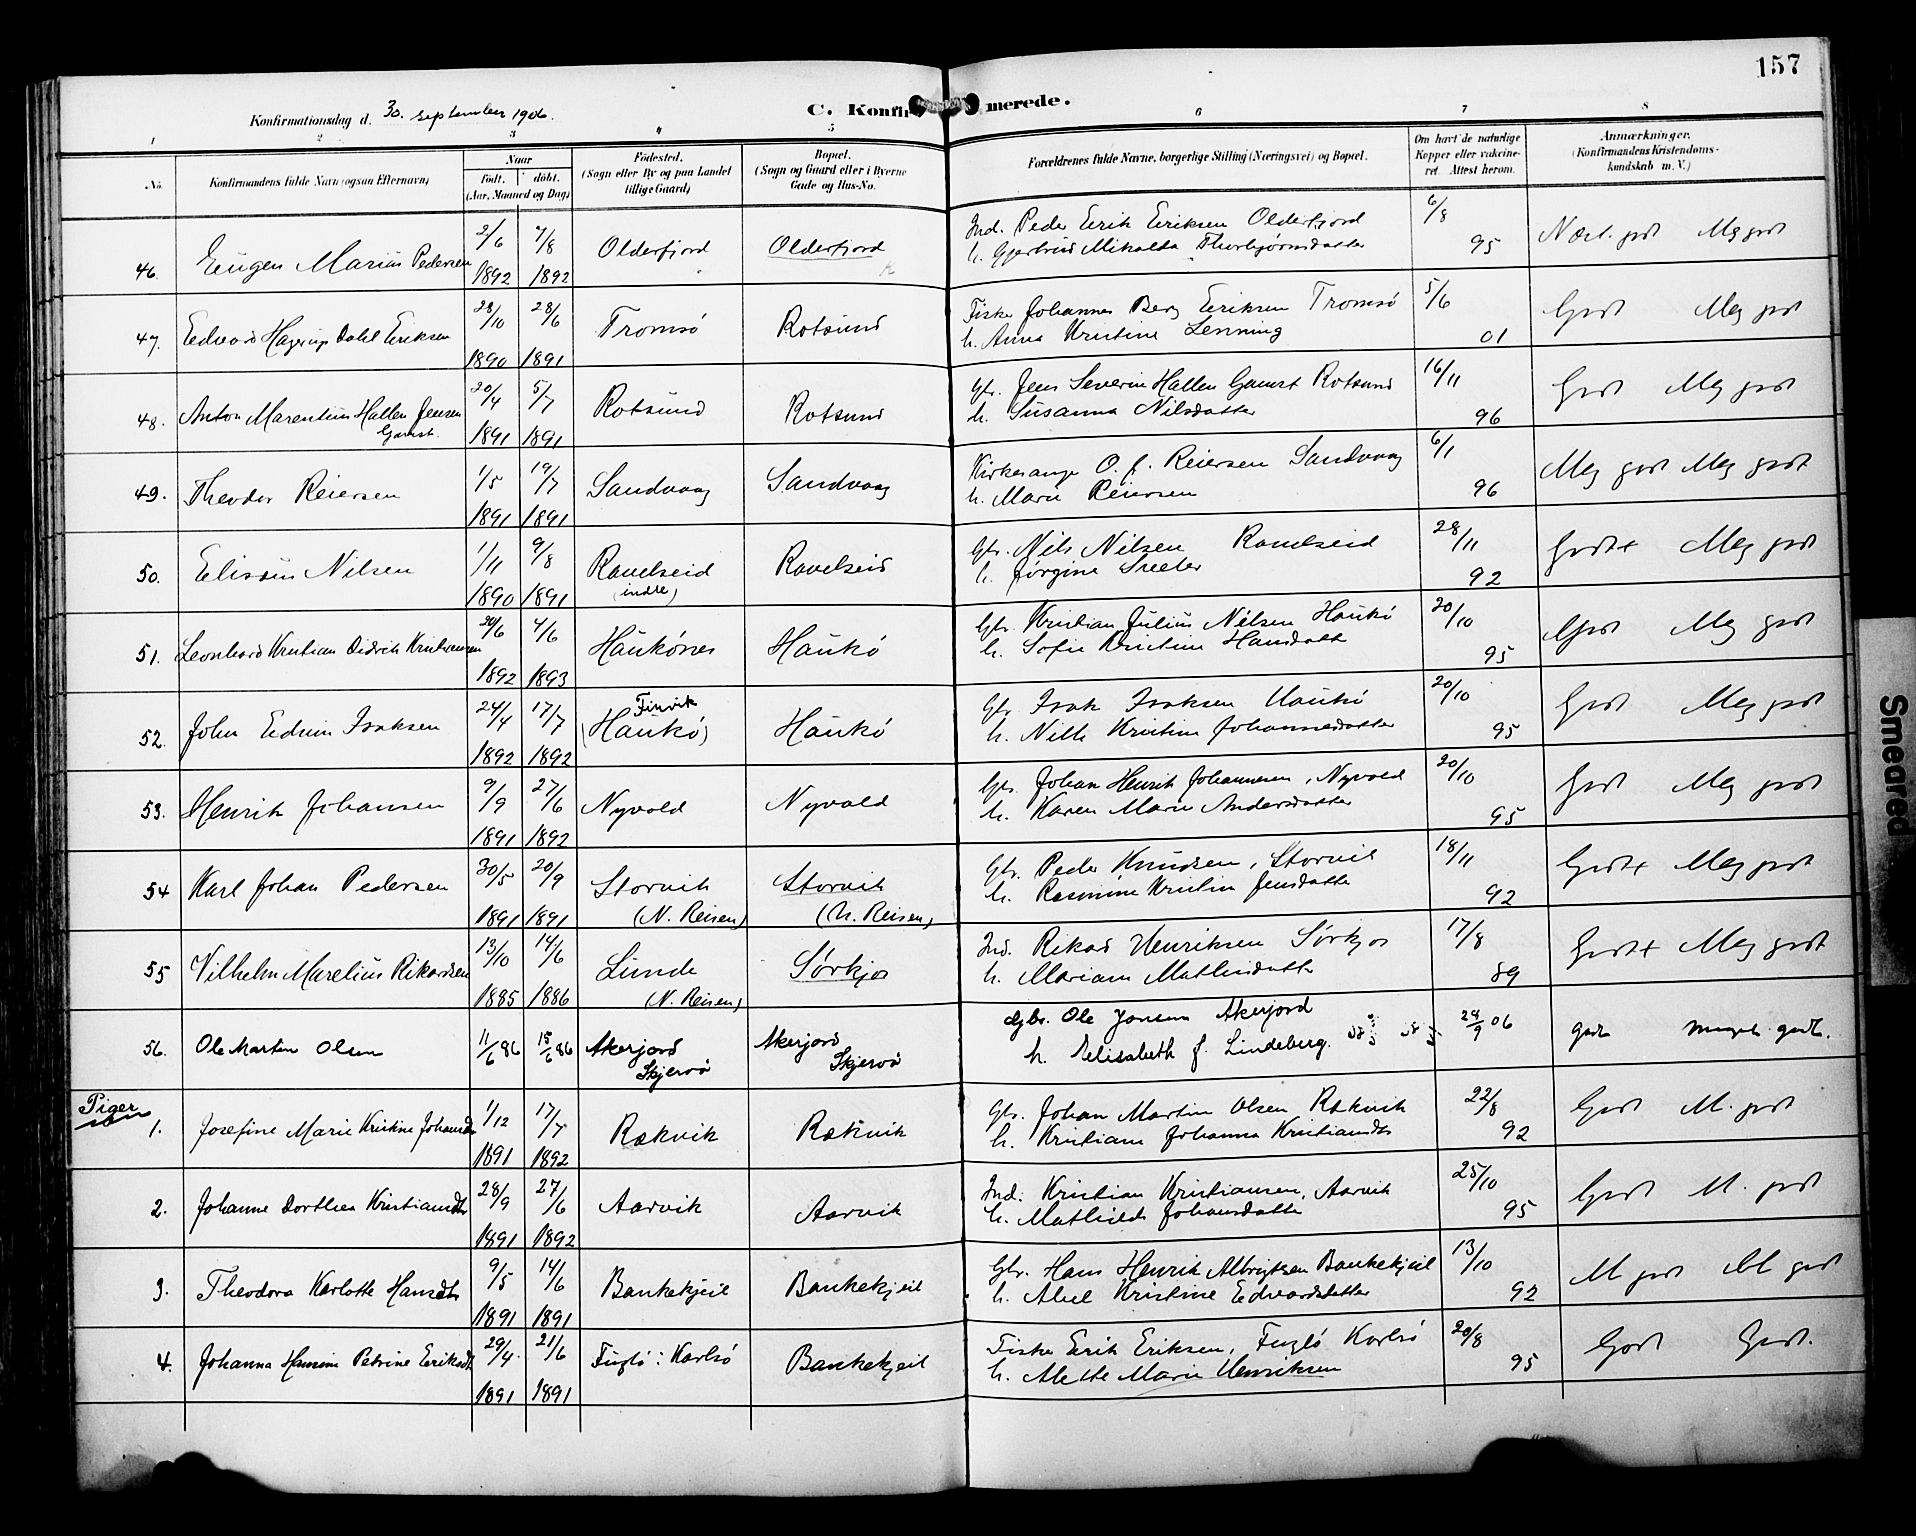 157
Konfirmationsdag d. 30. september 1906.
C. Konfirmerede.
1 2 3 4 5 6 7 8
No. Konfirmandens fulde Navn (ogsaa Efternavn) Naar Födt. döbt. (Aar, Maaned og Dag) Födested. (Sogn eller By og paa Landet tillige Gaard) Bopæl. (Sogn og Gaard eller i Byerne Gade og Hus-No. Forældrenes fulde Navne, borgerlige Stilling (Næringsvei) og Bopæl. Om havt de naturlige Kopper eller vakcineret. Attest herom. Anmærkninger. (Konfirmandens Kristendomskundskab m. V.)
46. Eugen Marius Pedersen 2/6 1892 7/8 1892 Olderfjord Olderfjord Ind. Peder Eerik Eeriksen Olderfjord 6/8 95 Nært. godt Meg godt
h. Gjertrud Mikalda Thorbjørnsdatter
47. Edvard Hagerup Dahl Eriksen 28/10 1890 28/6 1891 Tromsö Rotsund Fisker Johannes Berg Eeriksen Tromsö 5/6 01 Godt Meg godt
h. Anna Kristine Lenning
48. Anton Marentius Hallen Jensen Gamst. 20/4 1891 5/7 1891 Rotsund Rotsund Gbr. Jens Severin Hallen Gamst Rotsund 16/11 96 Godt Meg godt
h. Susanna Nilsdatter
49. Theodor Reiersen 1/5 1891 19/7 1891 Sandvaag Sandvaag Kirkesanger O. J. Reiersen Sandvaag 6/11 96 Meg godt Meg godt
h. Marie Reiersen
50. Elisæus Nilsen 1/11 1890 9/8 1891 Ravelseid (indre) Ravelseid Gbr. Nils Nilsen Ravelseid 28/11 92 Godt+ Meg godt
h. Jørgine
51. Leonhard Kristian Didrik Kristiansen 1892 4/6 1893 Haukönes Haukö Gbr. Kristian Julius Nilsen Haukö 20/10 95 Godt Meg godt
h. Sofie Kristine Hansdatt
52. John Edvin Isaksen 24/4 1892 17/7 1892 Finvik (Haukö) Haukö Gbr Isak Isaksen Haukö 20/10 95 Godt Meg godt
h. Nille Kristine Johannesdatter
53. Henrik Johansen 9/9 1891 27/6 1892 Nyvold Nyvold Gbr. Johan Henrik Johannesen, Nyvold 20/10 95 Godt Meg godt
h. Karen Marie Andersdatter
54 Karl Johan Pedersen 30/5 1891 20/9 1891 Storvik (N. Reisen) Storvik (N. Reisen) Gbr. Peder Knudsen, Storvik 18/11 92 Godt+ Meg godt
h. Rasmine Kristine Jensdatter
55 Vilhelm Marelius Rikardsen 13/10 1885 14/6 1886 Lunde (N. Reisen) Sørkjos Ind. Rikard Henriksen Sørkjos 17/8 89 Godt+ Meg godt
h. Mariam Mathisdatter
56. Ole Martin Olsen 11/6 86 15/6 86 Akerjord Skjervö Akerjord Skjervö Gbr. Ole Jonsen Akerjord 24/9 06 godt meget godt.
h. Elisabeth f. Lindeberg.
Piger
1. Josefine Marie Kristine Johansdt 1/12 1891 17/7 1892 Rækvik Rækvik Gbr. Johan Martin Olsen Rækvik 22/8 92 Godt M. godt
h. Kristiane Johanna Kristiansdt
2. Johanne Dorthea Kristiansdt 28/9 1891 27/6 1892 Aarvik Aarvik Ind. Kristian Kristiansen, Aarvik 25/10 95 Godt M. godt
h. Mathilde Johansdatter
3. Theodora Karlotte Hansdt 9/5 1891 14/6 1891 Bankekjeil Bankekjeil Gbr. Hans Henrik Albrigtsen Bankekjeil 13/10 92 M godt M godt
h. Abel Kristine Edvardsdatter
4. Johanna Hansine Petrine Eeriksdt 29/4 1891 21/6 1891 Fuglö i Karlsö Bankekjeil Fisker Eerik Eeriksen, Fuglö Karlsö 20/8 95 Godt Godt.
h. Alette Marie Henriksen
Smeared